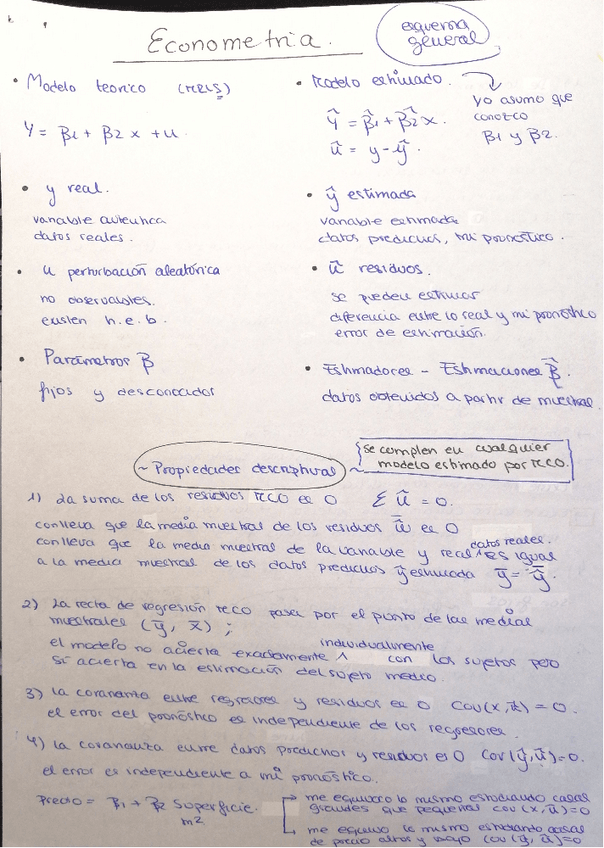 Econometria.
esquema
general
• Modelo teorico (MRLS)
Y = β1 + β2 x + u.
• Modelo estimado.
Ŷ = β̂1 + β̂2 x.
û = y - ŷ.
Yo asumo que
conozco
β1 y β2.
• y real.
variable autentica
datos reales.
• ŷ estimada
variable estimada
datos predichos, mi pronóstico.
• u perturbación aleatórica
no observables.
existen h.e.b.
• û residuos.
se pueden estimar
diferencia entre lo real y mi pronóstico
error de estimación.
• Parámetros β
fijos y desconocidos
• Estimadores - Estimaciones β̂.
datos obtenidos a partir de muestras.
~ Propiedades descriptivas ~
se complen en cualquier
modelo estimado por MCO.
1) La suma de los residuos MCO es 0 Σ û = 0.
conlleva que la media muestral de los residuos û es 0
conlleva que la media muestral de la variable y real datos reales. es igual
a la media muestral de los datos predichos ŷ estimada ȳ = ŷ̄.
2) La recta de regresión MCO pasa por el punto de las medias
muestrales (ȳ, x̄) ;
el modelo no acierta exactamente individualmente con los sujetos pero
si acierta en la estimación del sujeto medio.
3) la covarianza entre regresores y residuos es 0 Cov(x, û) = 0.
el error del pronóstico es independiente de los regresores.
4) la covarianza entre datos predichos y residuos es 0 Cov(ŷ, û)=0.
el error es independiente a mi pronóstico.
Precio = β1 + β2 Superficie.
m²
me equivoco lo mismo estudiando casas
grandes que pequeñas cov(x, û)=0
me equivoco lo mismo estudiando casas
de precio altos y bajo Cov(ŷ, û)=0